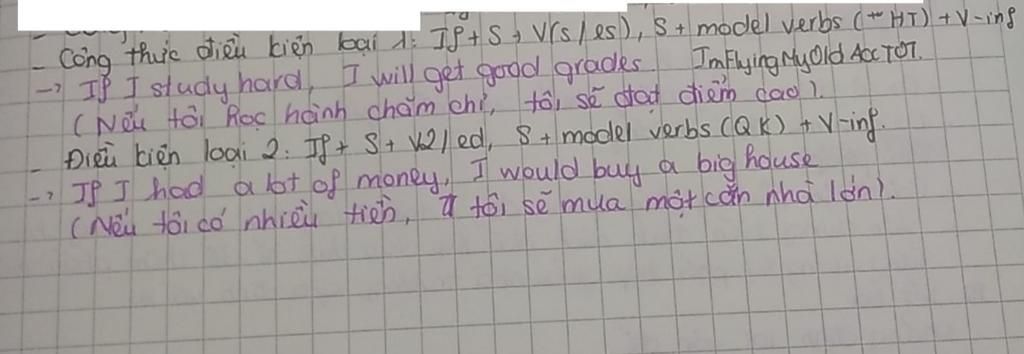 - Công thức điều kiện loại 1: If + S + V(s/es), S + model verbs (HT) + V-inf
ImFlyingMyOld AccTOT.
-> If I study hard, I will get good grades
(Nếu tôi học hành chăm chỉ, tôi sẽ đạt điểm cao).
- Điều kiện loại 2: If + S + V2/ed, S + model verbs (QK) + V-inf.
-> If I had a lot of money, I would buy a big house
(Nếu tôi có nhiều tiền, tôi sẽ mua một căn nhà lớn).